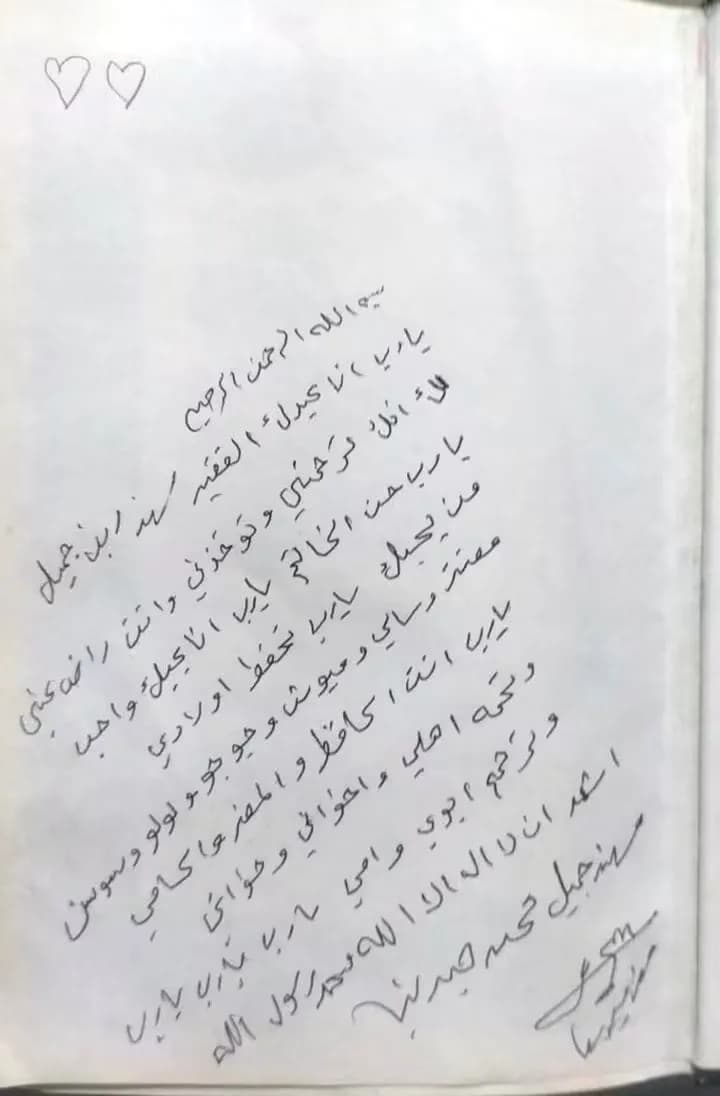 بسم الله الرحمن الرحيم
يارب انا عبدك الفقير مهند ابن جميل
لك انك ترحمني وتوخذني وانت راضه عني
يارب حسن الخاتم يارب انا بحبك واحب
من يحبك يارب تحفظ اولادي
معتز وسالي وميوش وجوجو ولولو وسوسن
يارب انت الحافظ و الحامي
وتحمه اهلي واخواني وخواتي
وترحم ابوي وامي يارب يارب يارب
اشهد ان لا اله الا الله محمد رسول الله
مهند جميل محمد